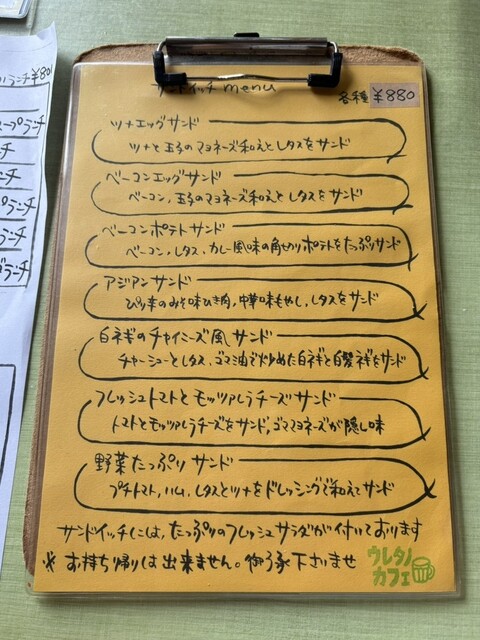 サンドイッチmenu
各種 ¥880
ツナエッグサンド
ツナと玉子のマヨネーズ和えとレタスをサンド
ベーコンエッグサンド
ベーコン、玉子のマヨネーズ和えとレタスをサンド
ベーコンポテトサンド
ベーコン、レタス、カレー風味の角切りポテトをたっぷりサンド
アジアンサンド
ぴり辛のみそ味ひき肉、中華味もやし、レタスをサンド
白ネギのチャイニーズ風サンド
チャーシューとレタス、ゴマ油で炒めた白ネギと白髪ネギをサンド
フレッシュトマトとモッツァレラチーズサンド
トマトとモッツァレラチーズをサンド、ゴママヨネーズが隠し味
野菜たっぷりサンド
プチトマト、ハム、レタスとツナをドレッシングで和えてサンド
サンドイッチには、たっぷりのフレッシュサラダが付いております
※お持ち帰りは出来ません。御了承下さいませ
ウレタノ
カフェ
ランチ¥880
スープランチ
ンチ
ンチ
プランチ
ランチ
グランチ